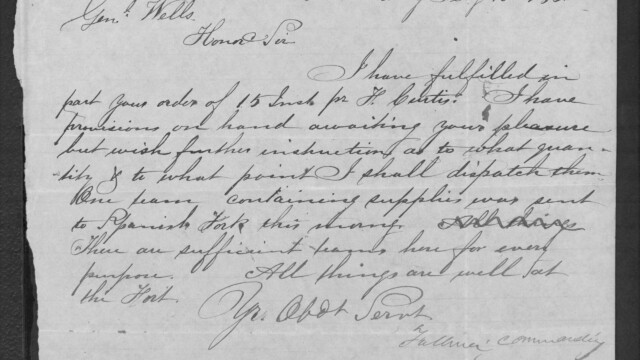 Genl. Wells
Honord Sir
I have fulfilled in
part your order of 15 Inst pr F. Curtis. I have
provisions on hand awaiting your pleasure
but wish further instruction as to what quan-
tity & to what point I shall dispatch them
One team containing supplies was sent
to Spanish Fork this morng
There are sufficient teams here for every
purpose. All things are well at
the Fort
Yr. Obdt Servt
Fullmer commanding